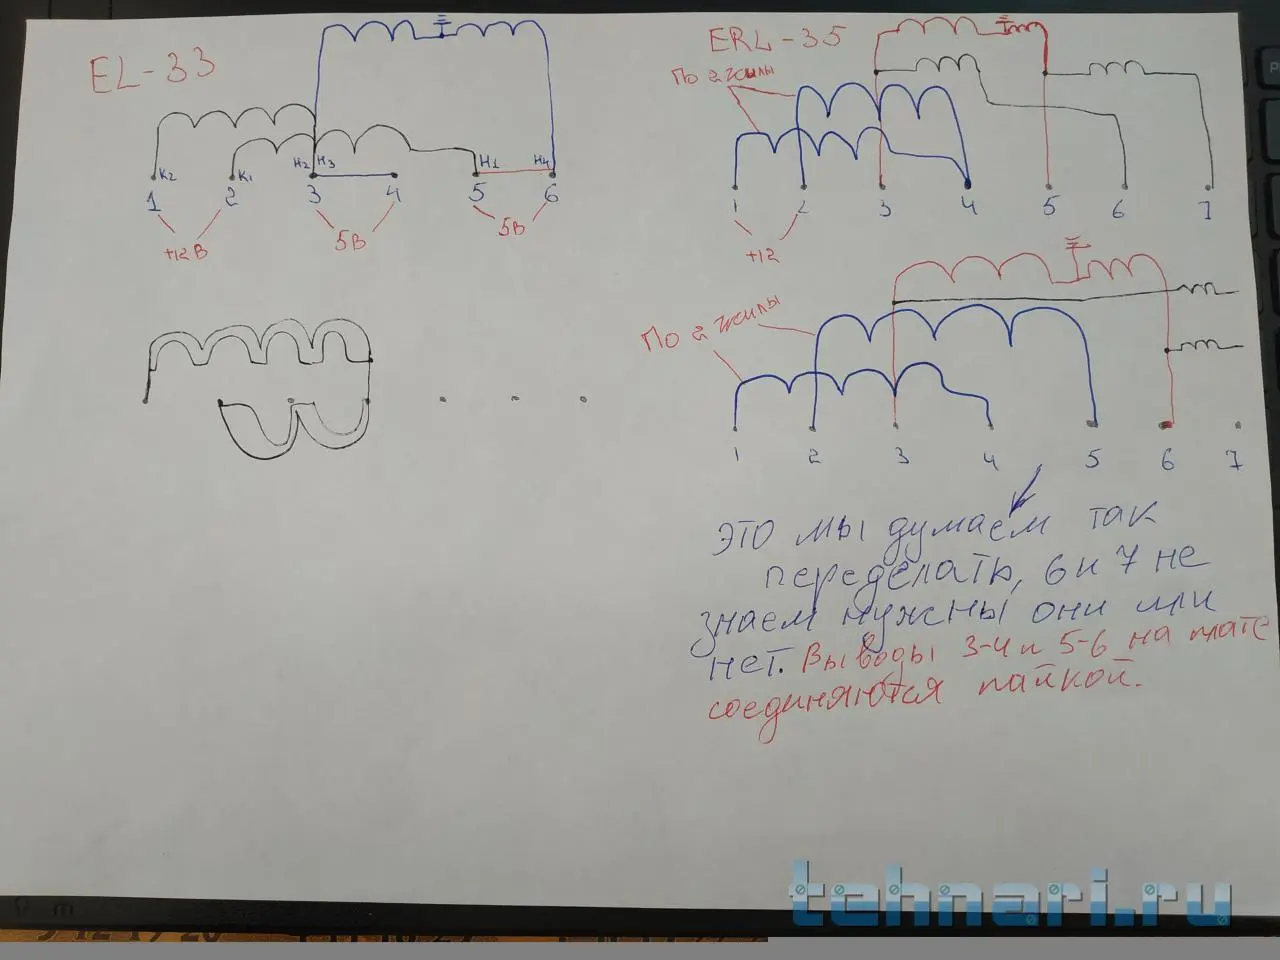 EL-33
К2
К1
Н2
Н3
Н1
Н4
1
2
3
4
5
6
+12В
5В
5В
ERL-35
По 2 жилы
1
2
3
4
5
6
7
+12
По 2 жилы
1
2
3
4
5
6
7
это мы думаем так
переделать, 6 и 7 не
знаем нужны они или
нет. Выводы 3-4 и 5-6 на плате
соединяются пайкой.
tehnari.ru